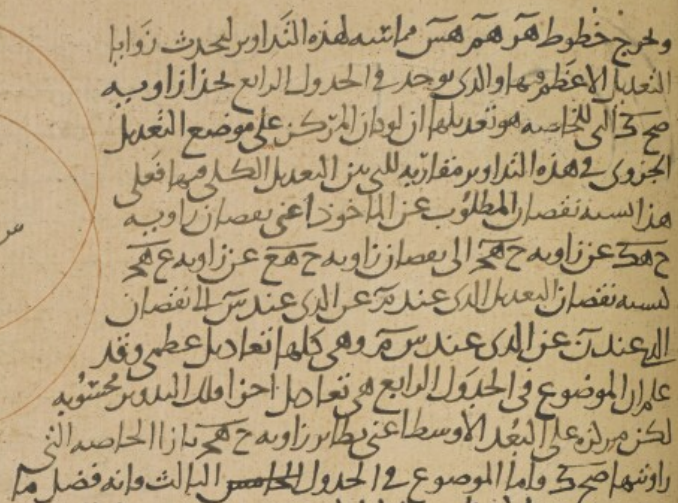 ونخرج خطوط هر هم هس مماسه لهذه التداوير لتحدث زوايا
التعديل الاعظم فيها والذى يوجد فى الجدول الرابع بحذا زاويه
التى للخاصه هو تعديلها ان لو كان المركز على موضع التعديل
الجزوى فى هذه التداوير مقاربه للتى بين التعديل الكلى فيها فعلى
هذا نسبه نقصان المطلوب عن الماخوذ اعنى نقصان زاويه
عن زاويه الى نقصان زاويه ح هع عن زاويه
كنسبه نقصان التعديل الذى عند عن الذى عند س الى نقصان
الذى عند ن عن الذى عند س وهى كلها تعاديل عظمى وقد
علم ان الموضوع فى الجدول الرابع هى تعاديل اجزا فلك التدوير محسوبه
لكن مركزه على البعد الاوسط اعنى نظاير زاويه بازا الخاصه التى
زاويتها واما الموضوع فى الجدول الثالث فانه فضل ما